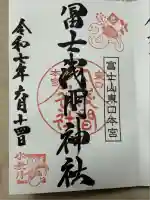 富士山東口本宮
冨士浅間神社
令和七年六月十四日